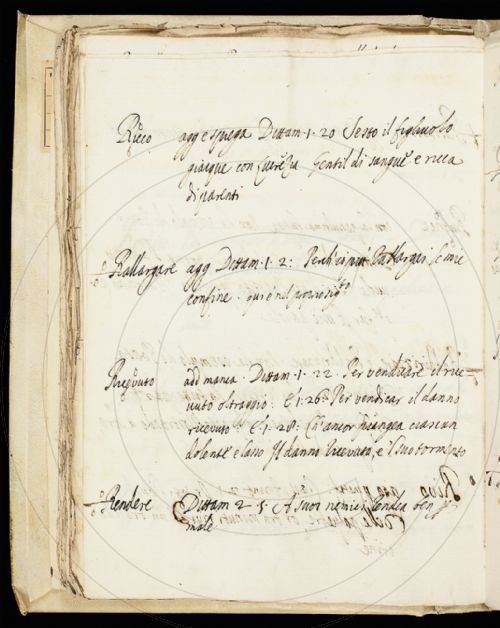 Ricco agg e spiega Dittam. 1. 20 Sesto il figliuolo
giacque con Lucrezia Gentil di sangue e ricca
di parenti
Rallargare agg Dittam. 1. 2: Perch'io più rallarghi le mie
confine. qui è nel proprio sig.to
Ricevuto add manca. Dittam. 1. 22. Per vendicare il rice
vuto oltraggio: E 1. 26. Per vendicar il danno
ricevuto E 1. 28: Ch'ancor piangea ciascun
dolente e lasso Il danno ricevuto, e 'l suo tormento
Rendere Dittam 2. 5. A suoi nemici rendea ben
male